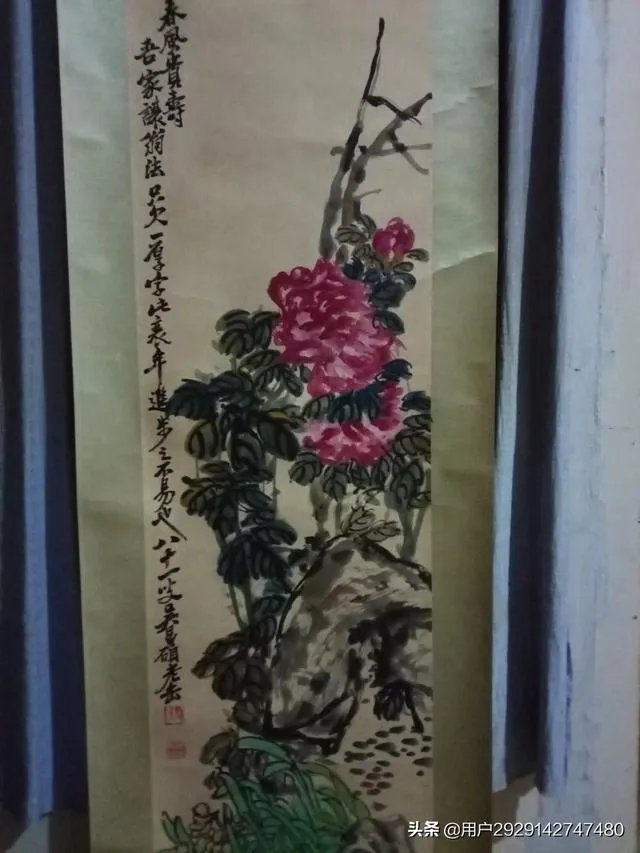 春風貴壽
吾家讓翁法只欠一厚字此衰年進步之不易也八十一叟吳昌碩老缶
头条 @用户2929142747480